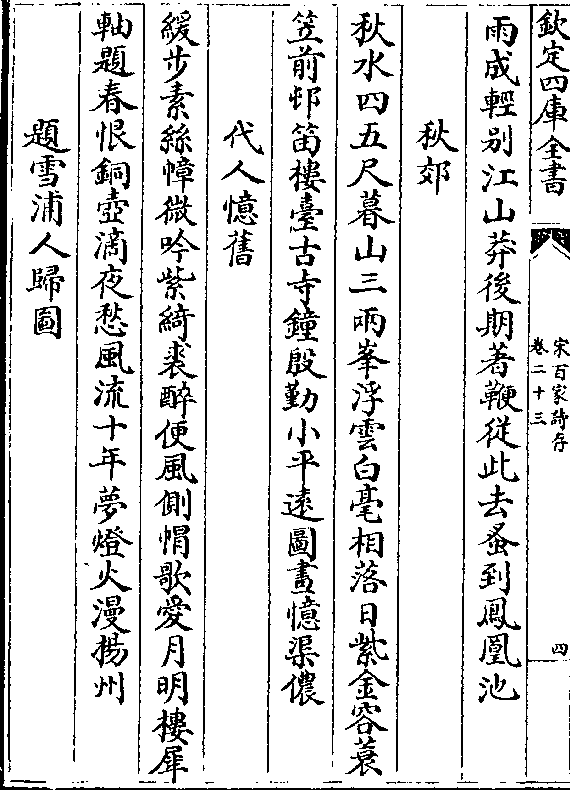 欽定四庫全書
宋百家詩存
卷二十三
四
雨成輕别江山莽後期著鞭從此去蚤到鳳凰池
秋郊
秋水四五尺暮山三兩峯浮雲白毫相落日紫金容蓑
笠前邨笛樓臺古寺鐘殷勤小平逺圖畫憶渠儂
代人憶舊
緩步素絲幛微吟紫綺裘醉便風側㡌歌愛月明樓犀
軸題春恨銅壺滴夜愁風流十年夢燈火漫揚州
題雪浦人歸圖